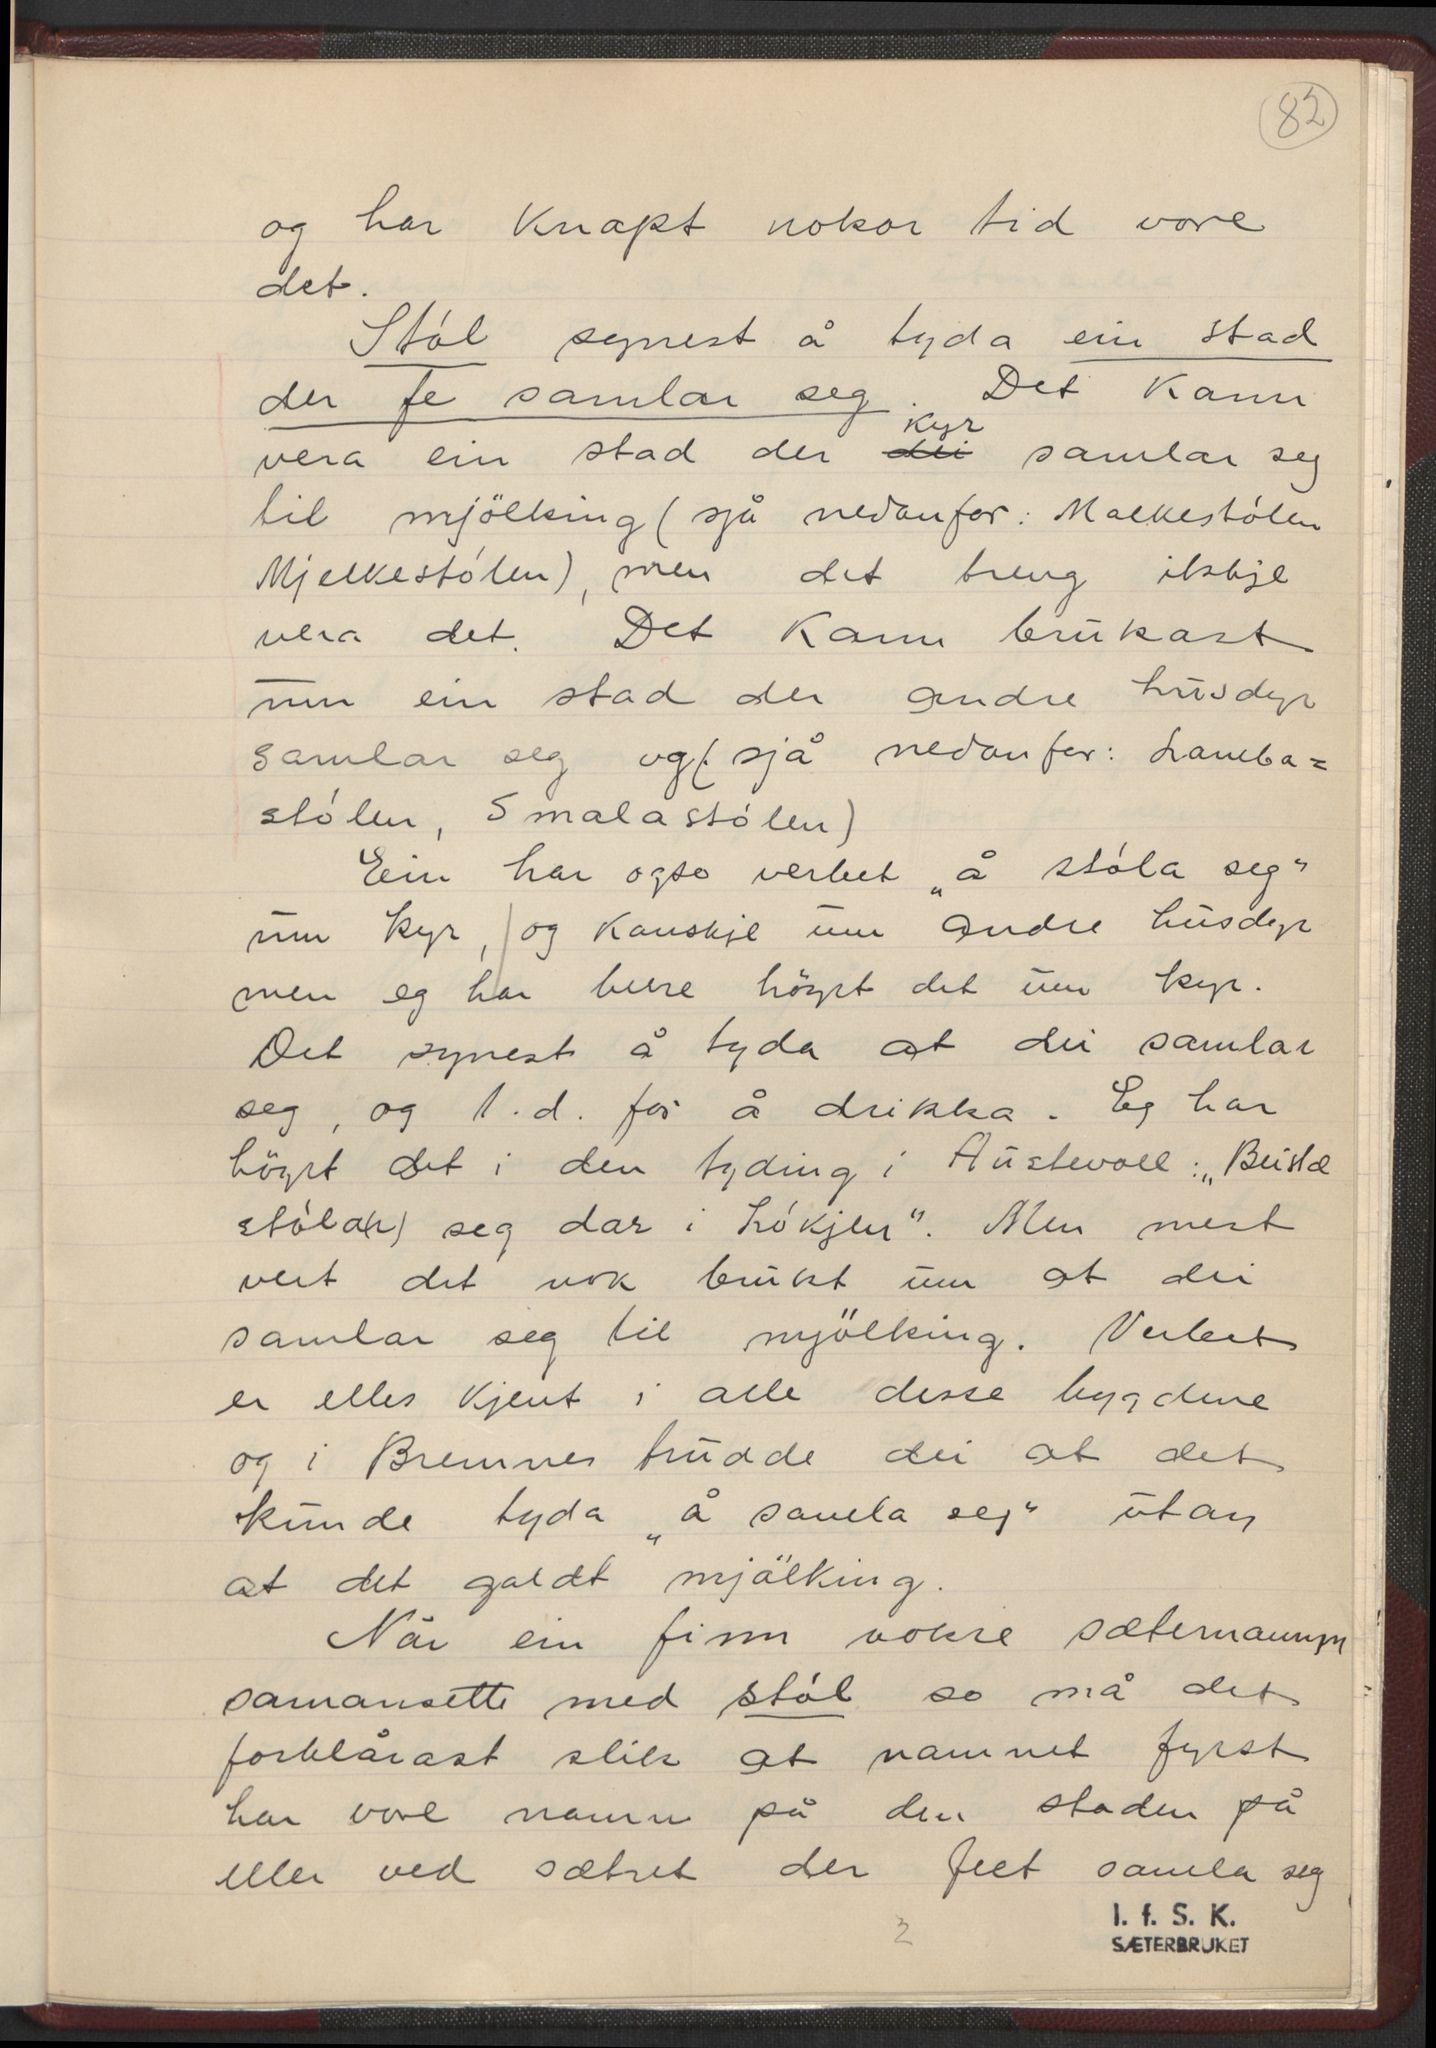 82
og har knapt nokor tid vore
det.
Stól synest å tyda ein stad
der fe samlar seg. Det kann
vera ein stad der dei kyr samlar seg
til mjölking (sjå nedanfor: Malkestólen
Mjelkestólen), men det treng ikkje
vera det. Det kann brukast
um ein stad der andre husdyr
samlar seg og (sjå nedanfor: Lamba=
stólen, Smalastólen)
Ein har ogso verbet „å stóla seg"
um kyr, og kanskje um andre husdyr
men eg har berre höyrt det um kyr.
Det synest å tyda at dei samlar
seg, og t.d. for å drikka. Eg har
höyrt det i den tyding i Austevoll: „Beistæ
stóla(r) seg dar i Lókjen". Men mest
vert det nok brukt um at dei
samlar seg til mjölking. Verbet
er elles kjent i alle desse bygdene
og i Bremnes trudde dei at det
kunde tyda „å samla seg" utan
at det galdt mjölking.
Når ein finn nokre sæternamn
samansette med stól so må det
forklårast slik at namnet fyrst
har vore namn på den staden på
eller ved sætret der feet samla seg
2
I. f. S. K.
SÆTERBRUKET